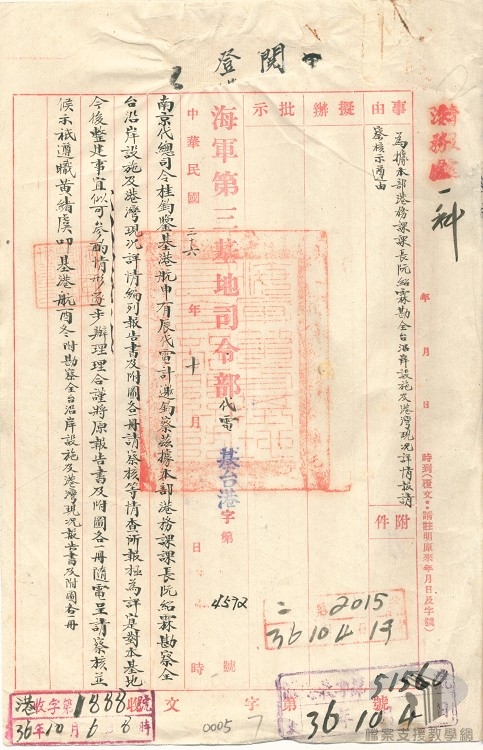 閱
登
港務處
一科
事由
為據本部港務課課長阮紹霖勘全台沿岸設施及港灣現況詳情報請
察核示遵由
擬辦
批示
附件
年 月 日 時到(復文:請註明原來年月日及字號)
海軍第三基地司令部代電
基台港字第4572號
中華民國三六年十月 日 時
南京代總司令桂鈞鑒基港航申有辰代電計邀鈞察茲據本部港務課課長阮紹霖勘察全
台沿岸設施及港灣現況詳情編列報告書及附圖各冊請察核等情查所報極為詳
是對本基地
今後整建事宜似可參酌情形逐步辦理理合謹將原報告書及附圖各一冊隨電呈請察核並
候示祇遵職黃緒虞叩基港航酉冬附勘察全台沿岸設施及港灣現況報告書及附圖各冊
2015
36 10 4 13
收文 字第 號
51560
36 10 4
港收字第1888號
36年10月6日8時
0005
7
檔案支援教學網